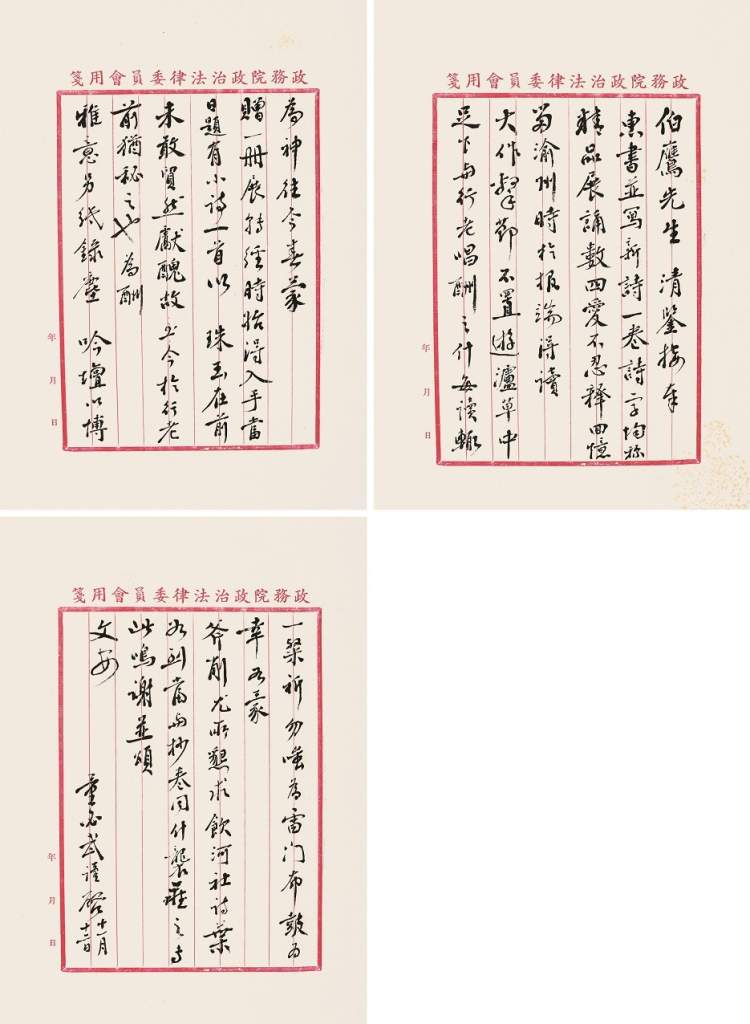 政務院政治法律委員會用箋
伯鷹先生 清鑒接奉
惠書並寫新詩一卷詩字均稱
精品展誦數四愛不忍釋回憶
留渝州時於報端得讀
大作擊節不置遊瀘草中
足下與行老唱酬之什每讀輒
年 月 日
政務院政治法律委員會用箋
為神往今春蒙
贈一冊展轉經時始得入手當
日題有小詩一首以 珠玉在前
未敢貿然獻醜故至今於行老
前猶秘之也 為酬
雅意另紙錄塵 吟壇以博
年 月 日
政務院政治法律委員會用箋
一粲祈勿嗤為雷門布鼓為
幸 如蒙
斧削尤所懇求 飲河社詩葉
如到當與抄卷同什襲藏之專
此鳴謝並頌
文安
董必武謹啓 十一月
十三日
年 月 日